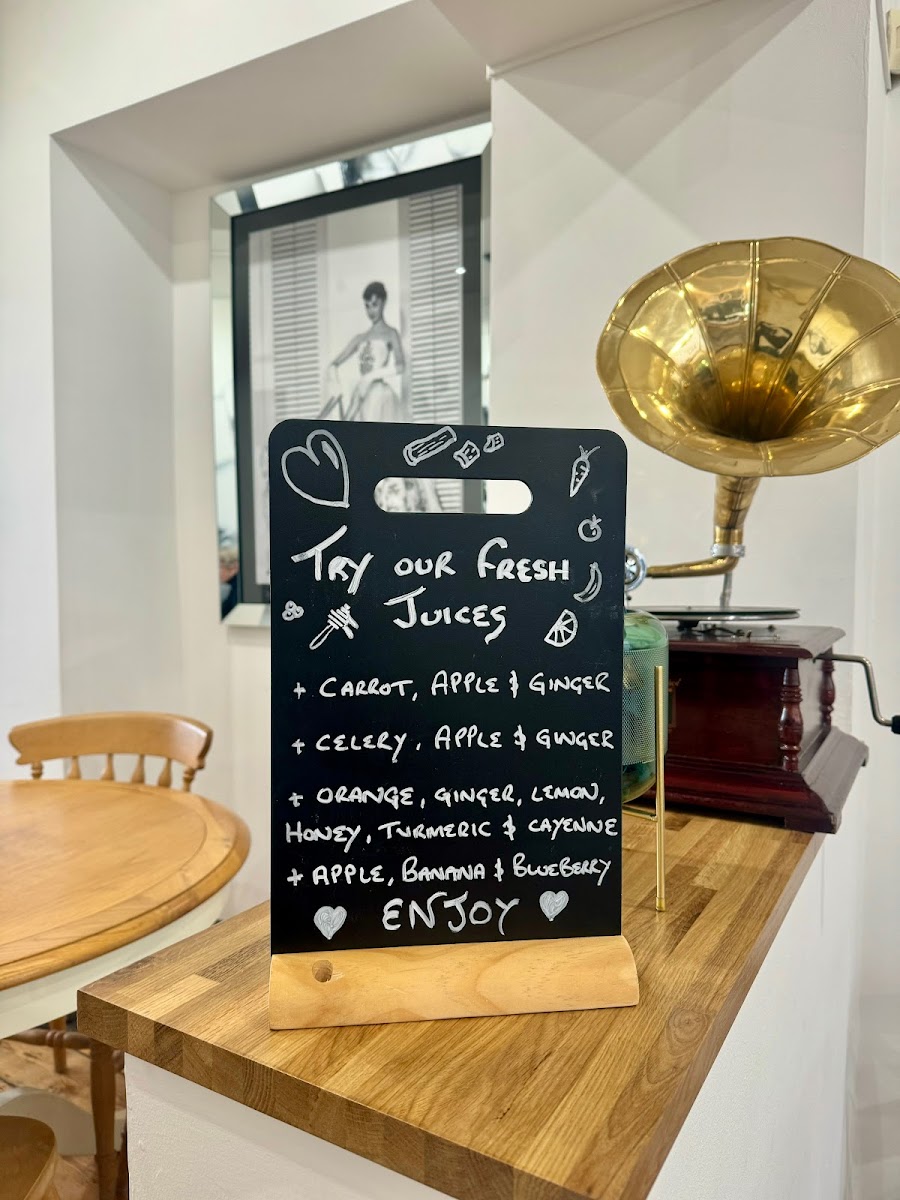 TRY OUR FRESH
JUICES
+ CARROT, APPLE & GINGER
+ CELERY, APPLE & GINGER
+ ORANGE, GINGER, LEMON,
HONEY, TURMERIC & CAYENNE
+ APPLE, BANANA & BLUEBERRY
ENJOY